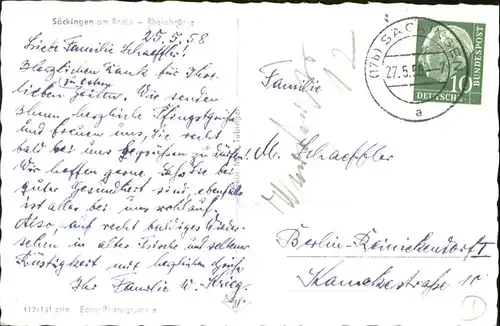 Säckingen am Rhein - Rheinbrücke
25.5.58
Liebe Familie Schaeffler!
Herzlichen Dank für Ihre
lieben Zeilen. Wir senden
Ihnen herzliche Pfingstgrüße
und freuen uns, Sie recht
bald bei uns begrüßen zu dürfen!
Wir hoffen gerne, daß Sie bei
guter Gesundheit sind, ebenfalls
ist alles bei uns wohlauf.
Also, auf recht baldiges Wieder-
sehen in alter Frische und seltener
Rüstigkeit mit herzlichen Grüße
Ihr Familie W. Krieg.
112/151 Echte Photographie
Familie
M. Schaeffler
Berlin-Reinickendorf 1
Kamekestraße 10
12
(17b) SÄCKINGEN
27.5.58
a
10
DEUTSCHE
BUNDESPOST